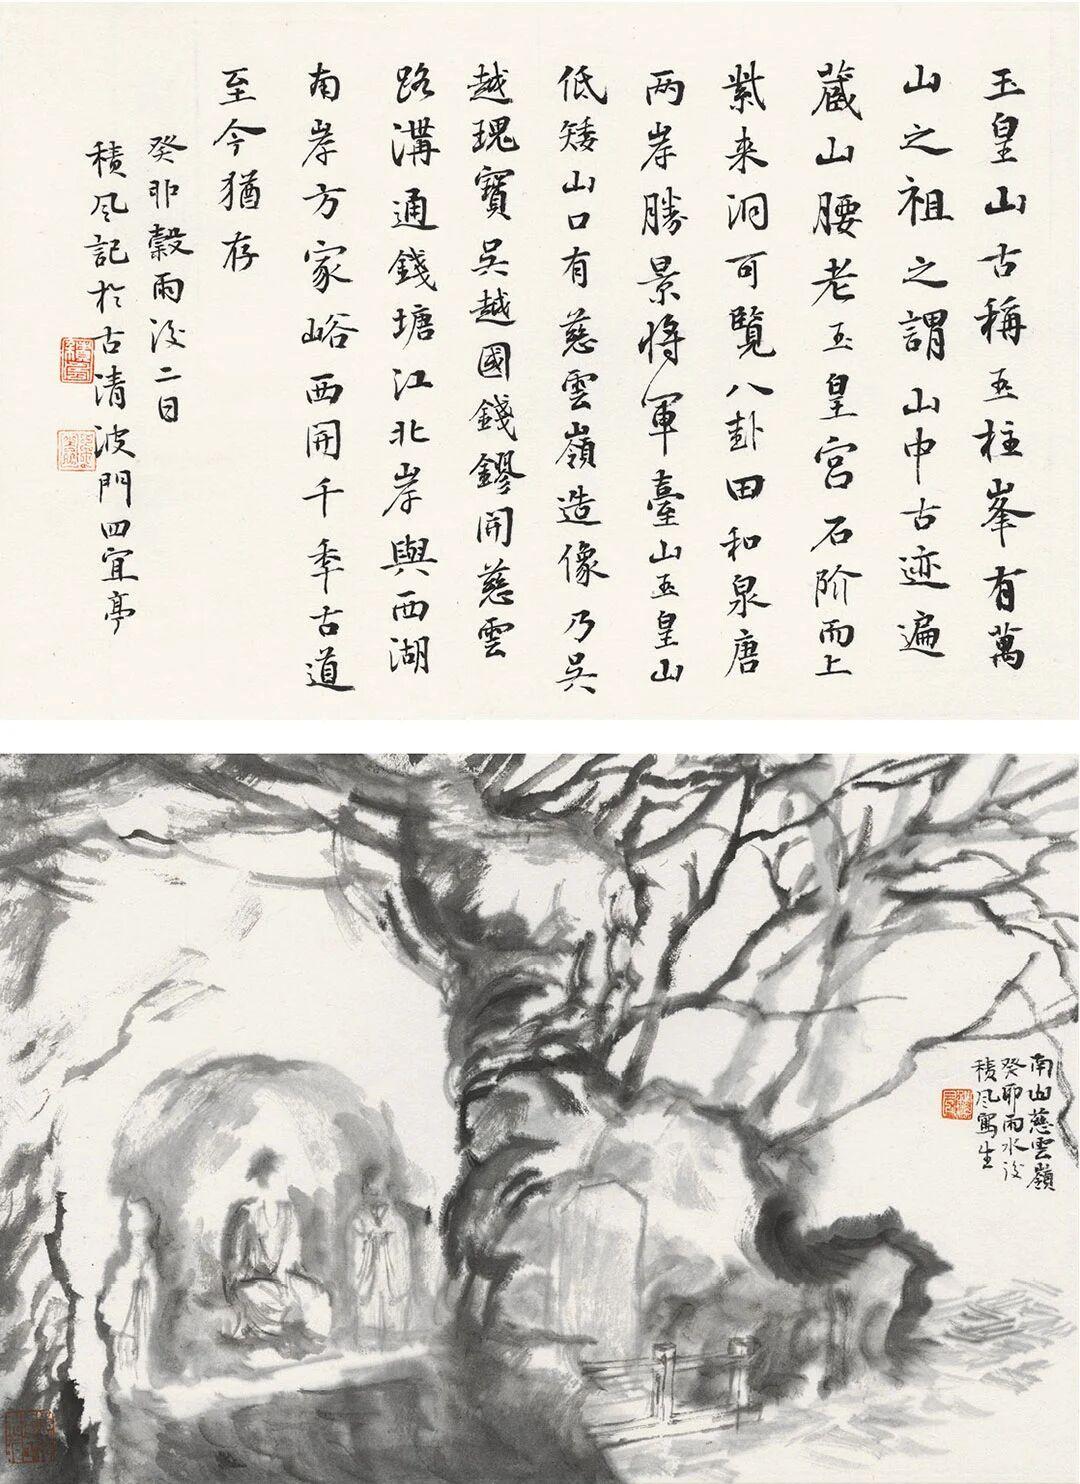 玉皇山古稱玉柱峯有萬
山之祖之謂山中古迹遍
藏山腰老玉皇宫石阶而上
紫来洞可覽八卦田和泉唐
两岸勝景将軍臺山玉皇山
低矮山口有慈雲嶺造像乃吴
越瑰寶吴越國錢鏐開慈雲
路溝通錢塘江北岸與西湖
南岸方家峪西開千年古道
至今猶存
癸卯穀雨後二日
積風記於古清波門四宜亭
南山慈雲嶺
癸卯雨水後
積風寫生